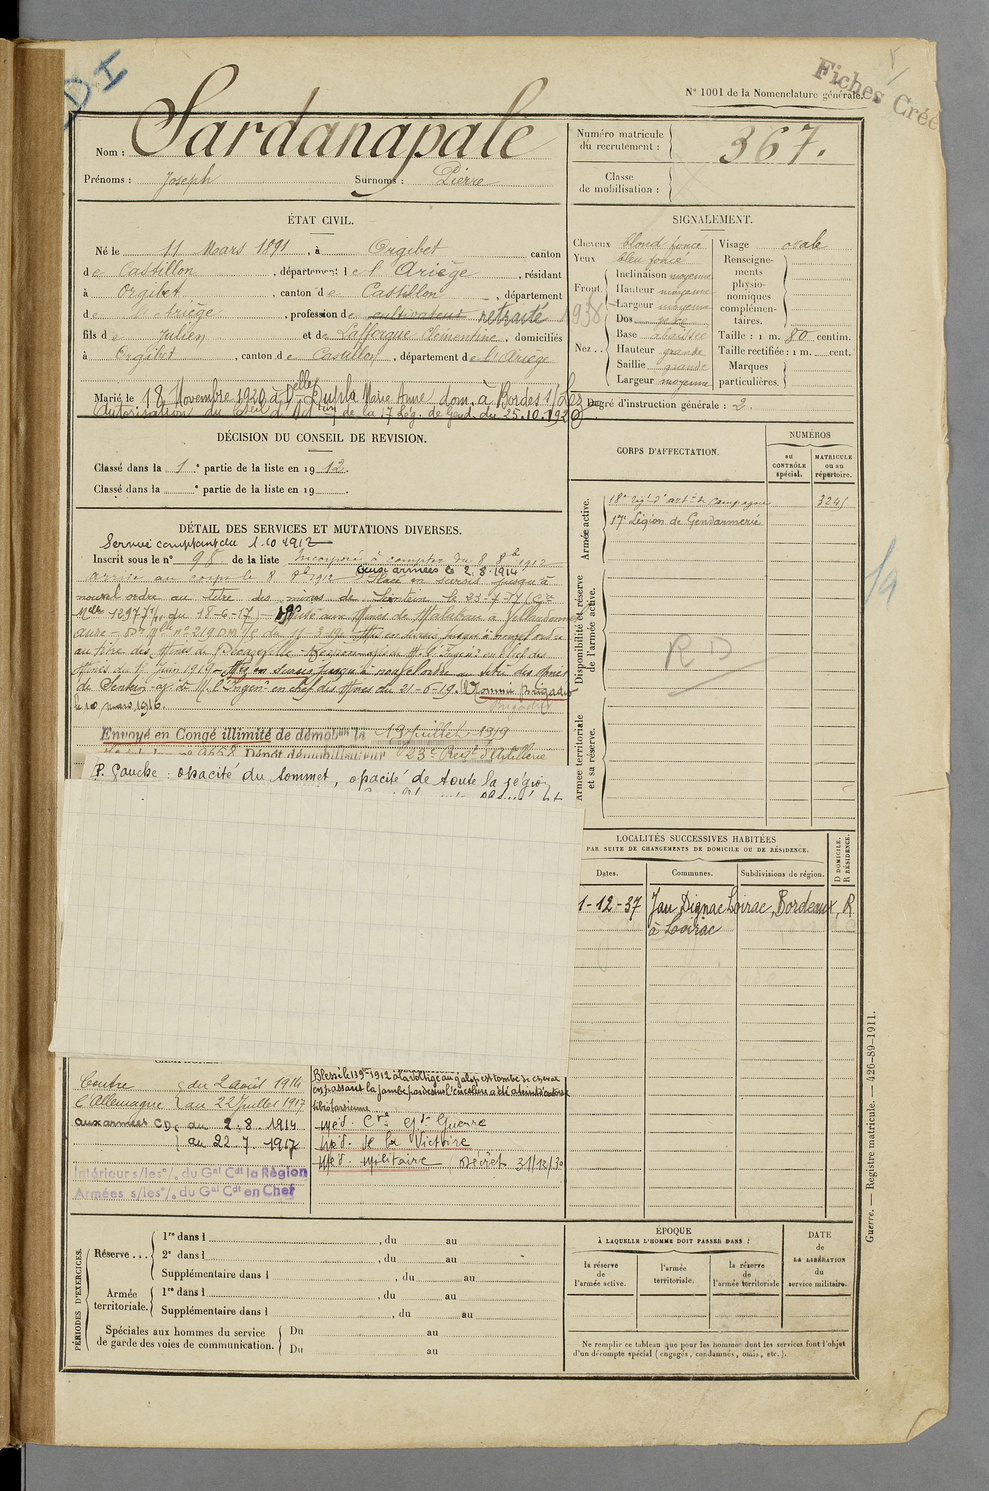 DI
Fiches Créé
N° 1001 de la Nomenclature générale.
Nom : Sardanapale
Prénoms : Joseph Surnoms : Pierre
Numéro matricule du recrutement : 367.
Classe de mobilisation :
ÉTAT CIVIL.
Né le 11 Mars 1891, à Orgibet canton
de Castillon, département de l'Ariège, résidant
à Orgibet, canton de Castillon, département
de l'Ariège, profession de cultivateur retraité 1938
fils de Julien et de Lafforgue Clémentine, domiciliés
à Orgibet, canton de Castillon, département de l'Ariège
Marié le 18 Novembre 1920 à Delle Dupla Marie Anne dom. à Bordes s/Lez
Autorisation du Cseil d'Adtion de la 17 Lég. de Gend. du 25.10.1920
SIGNALEMENT.
Cheveux blond foncé
Yeux bleu foncé
Front Inclinaison moyenne
Hauteur moyenne
Largeur moyenne
Nez .. Dos
Base abaissée
Hauteur grande
Saillie grande
Largeur moyenne
Visage ovale
Renseignements physionomiques complémentaires.
Taille : 1 m. 80 centim.
Taille rectifiée : 1 m. cent.
Marques particulières.
Degré d'instruction générale : 2.
DÉCISION DU CONSEIL DE REVISION.
Classé dans la 1e partie de la liste en 1912.
Classé dans la e partie de la liste en 19 .
CORPS D'AFFECTATION.
NUMÉROS
au CONTRÔLE spécial.
MATRICULE ou au répertoire.
Armée active.
18e Rég't d'artie de Campagne 3245
17e Légion de Gendarmerie
Disponibilité et réserve de l'armée active.
RD
Armée territoriale et sa réserve.
DÉTAIL DES SERVICES ET MUTATIONS DIVERSES.
Service comptant du 1.10 1912
Inscrit sous le n° 98 de la liste Incorporé à compter du 8 8bre 1912
aux armées le 2.8.1914
arrivé au corps le 8 8bre 1912 Placé en sursis jusqu'à
nouvel ordre au titre des mines de Sentein le 23-7-17
du 18-6-17) aux Mines de Malabau à Villardonnel
Aude
au titre des Mines de
Mines du 1er Juin 1919 - Mis en sursis jusqu'à nouvel ordre au titre des Mines
de Sentein M. l'Ingénr en chef des Mines du 21-6-19. Nommé Brigadier
le 10 mars 1916.
Brigadier
Envoyé en Congé illimité de démobon le 19 Juillet 1919
Dépôt démobilisateur 23e Régt d'Artillerie
P. Gauche : opacité du sommet, opacité de toute la région
LOCALITÉS SUCCESSIVES HABITÉES
PAR SUITE DE CHANGEMENTS DE DOMICILE OU DE RÉSIDENCE.
Dates. Communes. Subdivisions de région. D DOMICILE. R RÉSIDENCE.
1-12-37 Jau Dignac Loirac, Bordeaux, R
à Loirac
Contre du 2 août 1914
l'Allemagne au 22 Juillet 1917
aux armées CD, du 2.8.1914
au 22.7.1917
Intérieur s/les o/ du Gal Cdt la Région
Armées s/les o/ du Gal Cdt en Chef
Blessé le 1912 à la voltige au galop est tombé de cheval
en passant la jambe par dessus l'encolure a été atteint d'entorse
tibio tarsienne
Méd. Cve Gde Guerre
Méd. de la Victoire
Méd. Militaire Décret 31/12/30
PÉRIODES D'EXERCICES.
Réserve ... 1re dans l , du au
2e dans l , du au
Supplémentaire dans l , du au
Armée territoriale. 1re dans l , du au
Supplémentaire dans l , du au
Spéciales aux hommes du service de garde des voies de communication. Du au
Du au
ÉPOQUE
À LAQUELLE L'HOMME DOIT PASSER DANS :
la réserve de l'armée active.
l'armée territoriale.
la réserve de l'armée territoriale
DATE de LA LIBÉRATION du service militaire.
Ne remplir ce tableau que pour les hommes dont les services font l'objet
d'un décompte spécial (engagés, condamnés, omis, etc.).
Guerre. — Registre matricule. — 426-89-1911.